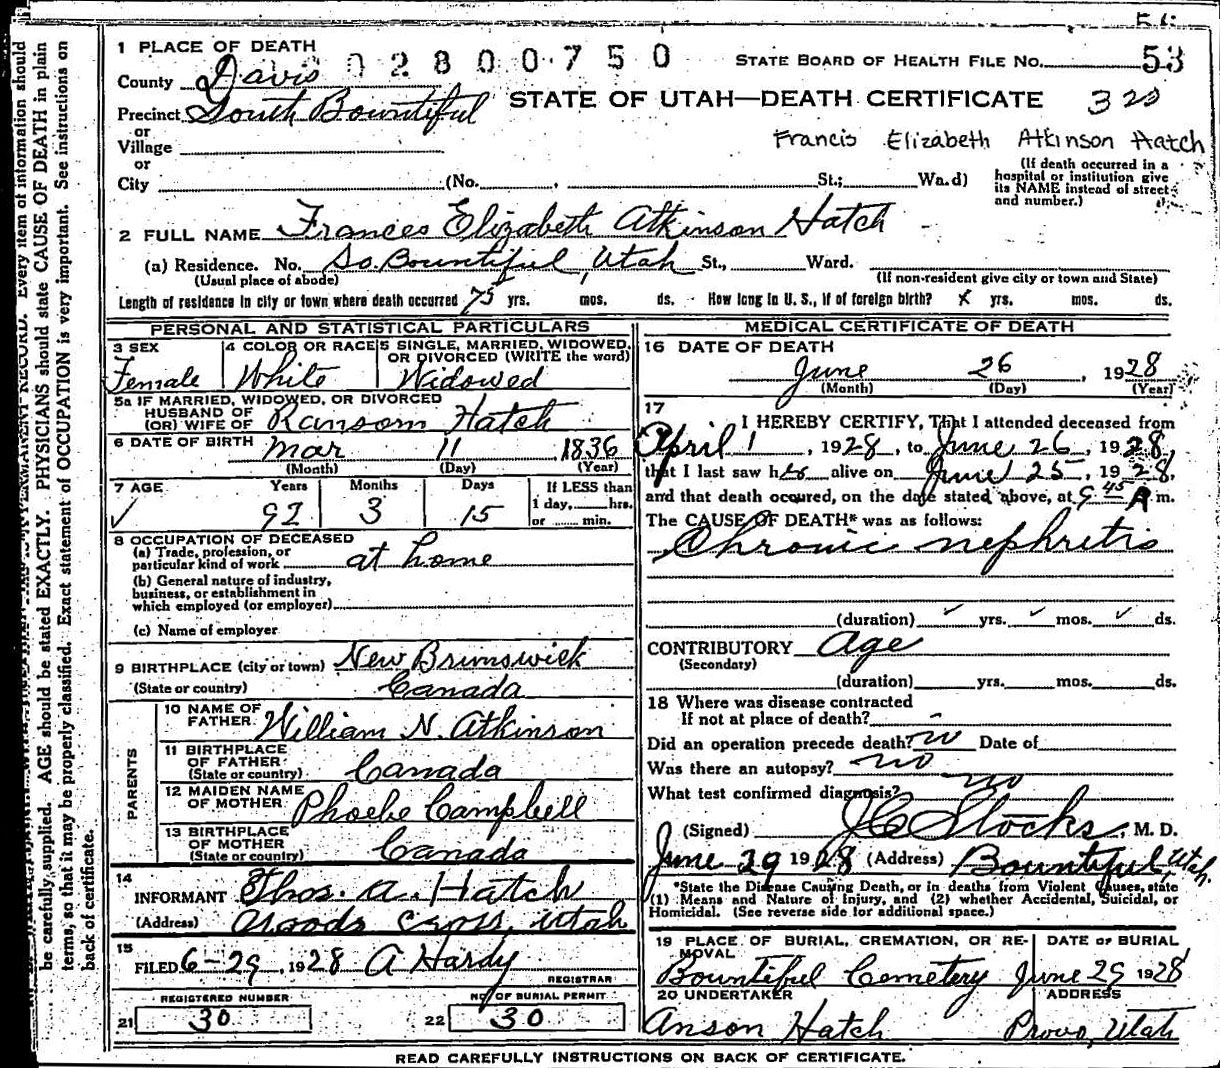 1 PLACE OF DEATH
0 2 8 0 0 7 5 0
STATE BOARD OF HEALTH FILE No. 53
County Davis
STATE OF UTAH—DEATH CERTIFICATE 320
Precinct South Bountiful
or
Village
Francis Elizabeth Atkinson Hatch
or
City (No. , St.; Ward)
(If death occurred in a
hospital or institution give
its NAME instead of street
and number.)
2 FULL NAME Frances Elizabeth Atkinson Hatch
(a) Residence. No. So. Bountiful, Utah St., Ward.
(Usual place of abode) (If non-resident give city or town and State)
Length of residence in city or town where death occurred 75 yrs. mos. ds. - How long in U. S., if of foreign birth? x yrs. mos. ds.
PERSONAL AND STATISTICAL PARTICULARS
3 SEX 4 COLOR OR RACE 5 SINGLE, MARRIED, WIDOWED,
OR DIVORCED (WRITE the word)
Female White Widowed
5a IF MARRIED, WIDOWED, OR DIVORCED
HUSBAND OF
(OR) WIFE OF Ransom Hatch
6 DATE OF BIRTH Mar 11 1836
(Month) (Day) (Year)
7 AGE Years Months Days If LESS than
1 day, hrs.
or min.
92 3 15
8 OCCUPATION OF DECEASED
(a) Trade, profession, or
particular kind of work at home
(b) General nature of industry,
business, or establishment in
which employed (or employer)
(c) Name of employer
9 BIRTHPLACE (city or town) New Brunswick
(State or country) Canada
PARENTS
10 NAME OF
FATHER William N. Atkinson
11 BIRTHPLACE
OF FATHER
(State or country) Canada
12 MAIDEN NAME
OF MOTHER Phoebe Campbell
13 BIRTHPLACE
OF MOTHER
(State or country) Canada
14
INFORMANT Thos. A. Hatch
(Address) Woods Cross, Utah
15
FILED 6-29, 1928 A Hardy
REGISTRAR
REGISTERED NUMBER NO. OF BURIAL PERMIT
21 30 22 30
MEDICAL CERTIFICATE OF DEATH
16 DATE OF DEATH
June 26, 1928
(Month) (Day) (Year)
17
I HEREBY CERTIFY, That I attended deceased from
April 1, 1928, to June 26, 1928,
that I last saw her alive on June 25, 1928,
and that death occured, on the date stated above, at 9 45 A m.
The CAUSE OF DEATH* was as follows:
Chronic nephritis
(duration) yrs. mos. ds.
CONTRIBUTORY Age
(Secondary)
(duration) yrs. mos. ds.
18 Where was disease contracted
If not at place of death? -
Did an operation precede death? no Date of
Was there an autopsy? no
What test confirmed diagnosis? no
(Signed) J C Stocks, M. D.
June 29 1928 (Address) Bountiful, Utah.
*State the Disease Causing Death, or in deaths from Violent Causes, state
(1) Means and Nature of Injury, and (2) whether Accidental, Suicidal, or
Homicidal. (See reverse side for additional space.)
19 PLACE OF BURIAL, CREMATION, OR RE-
MOVAL
DATE OF BURIAL
Bountiful Cemetery June 29 1928
20 UNDERTAKER ADDRESS
Anson Hatch Provo, Utah
READ CAREFULLY INSTRUCTIONS ON BACK OF CERTIFICATE.
PERMANENT RECORD. Every item of information should
be carefully supplied. AGE should be stated EXACTLY. PHYSICIANS should state CAUSE OF DEATH in plain
terms, so that it may be properly classified. Exact statement of OCCUPATION is very important. See instructions on
back of certificate.